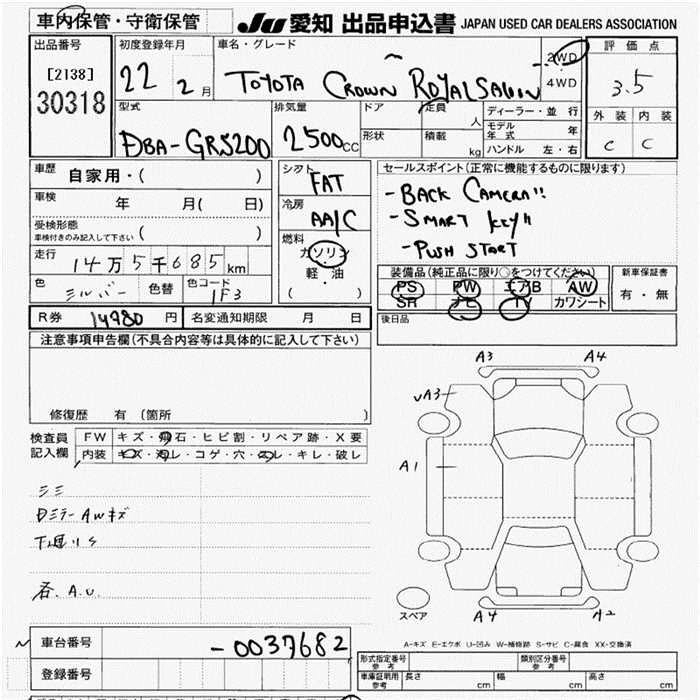 車内保管・守衛保管
JU 愛知 出品申込書 JAPAN USED CAR DEALERS ASSOCIATION
出品番号
[2138]
30318
初度登録年月
22 2月
車名・グレード
TOYOTA CROWN ROYAL SALOON
2WD
4WD
評価点
3.5
外装 内装
C C
型式
DBA-GRS200
排気量
2500cc
ドア
形状
定員 人
積載 kg
ディーラー・並行
モデル年式 年
ハンドル 左・右
車歴 自家用・( )
車検 年 月( 日)
受検形態
車検付きのみ記入して下さい ( )
走行 14万5千685km
色 シルバー 色替 色コード 1F3
シフト
FAT
冷房
AA/C
燃料
ガソリン
・
軽・油
( )
セールスポイント(正常に機能するものに限ります)
- BACK CAMERA!!
- SMART KEY!!
- PUSH START
装備品(純正品に限り○をつけてください)
PS PW エアB AW
SR ナビ TV カワシート
新車保証書
有・無
後日品
R券 14980円 名変通知期限 月 日
注意事項申告欄(不具合内容等は具体的に記入して下さい)
修復歴 有(箇所 )
検査員記入欄
FW キズ・飛石・ヒビ割・リペア跡・X要
内装 キズ・汚レ・コゲ・穴・スレ・キレ・破レ
ミミ
Dミラー AWキズ
下廻りS
各.A.U.
A3 A4
A3
A1
スペア
A4 A2
A-キズ E-エクボ U-凹み W-補修跡 S-サビ C-腐食 XX-交換済
車台番号 -0037682
登録番号
形式指定番号
参考
類別区分番号
参考
車庫証明用
参考
長さ cm 幅 cm 高さ cm